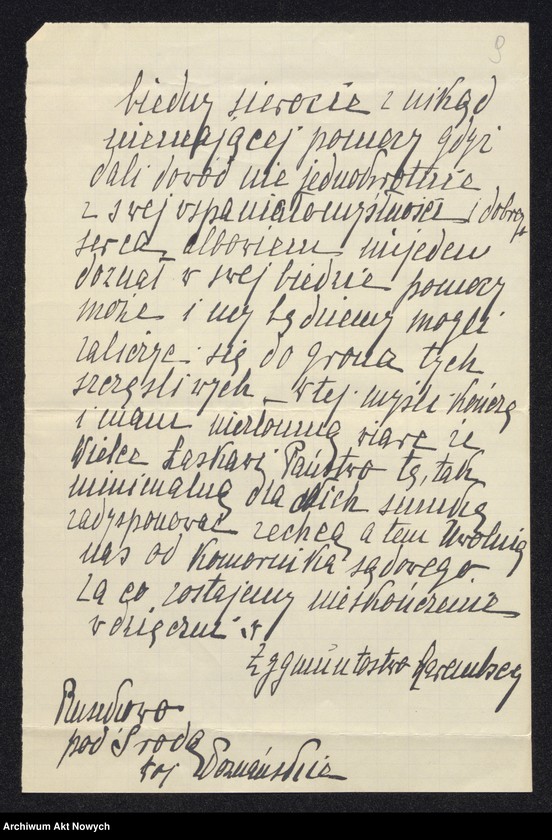 9
biedny sierocie z nikąd
niemającej pomocy gdyż
dali dowód nie jednokrotnie
z swej wspaniałomyślności i dobrego
serca, albowiem niejeden
doznał w swej biedzie pomocy
może i my będziemy mogli
zaliczyć się do grona tych
szczęśliwych – w tej myśli kończę
i mam niezłomną wiarę że
Wielce Łaskawi Państwo tę, tak
minimalną dla Nich sumkę
zadysponować zechcą a tem uwolnią
nas od Komornika sądowego
za co zostajemy nieskończenie
wdzięczni
Zygmuntostwo
pod Środą
woj Poznańskie
Archiwum Akt Nowych